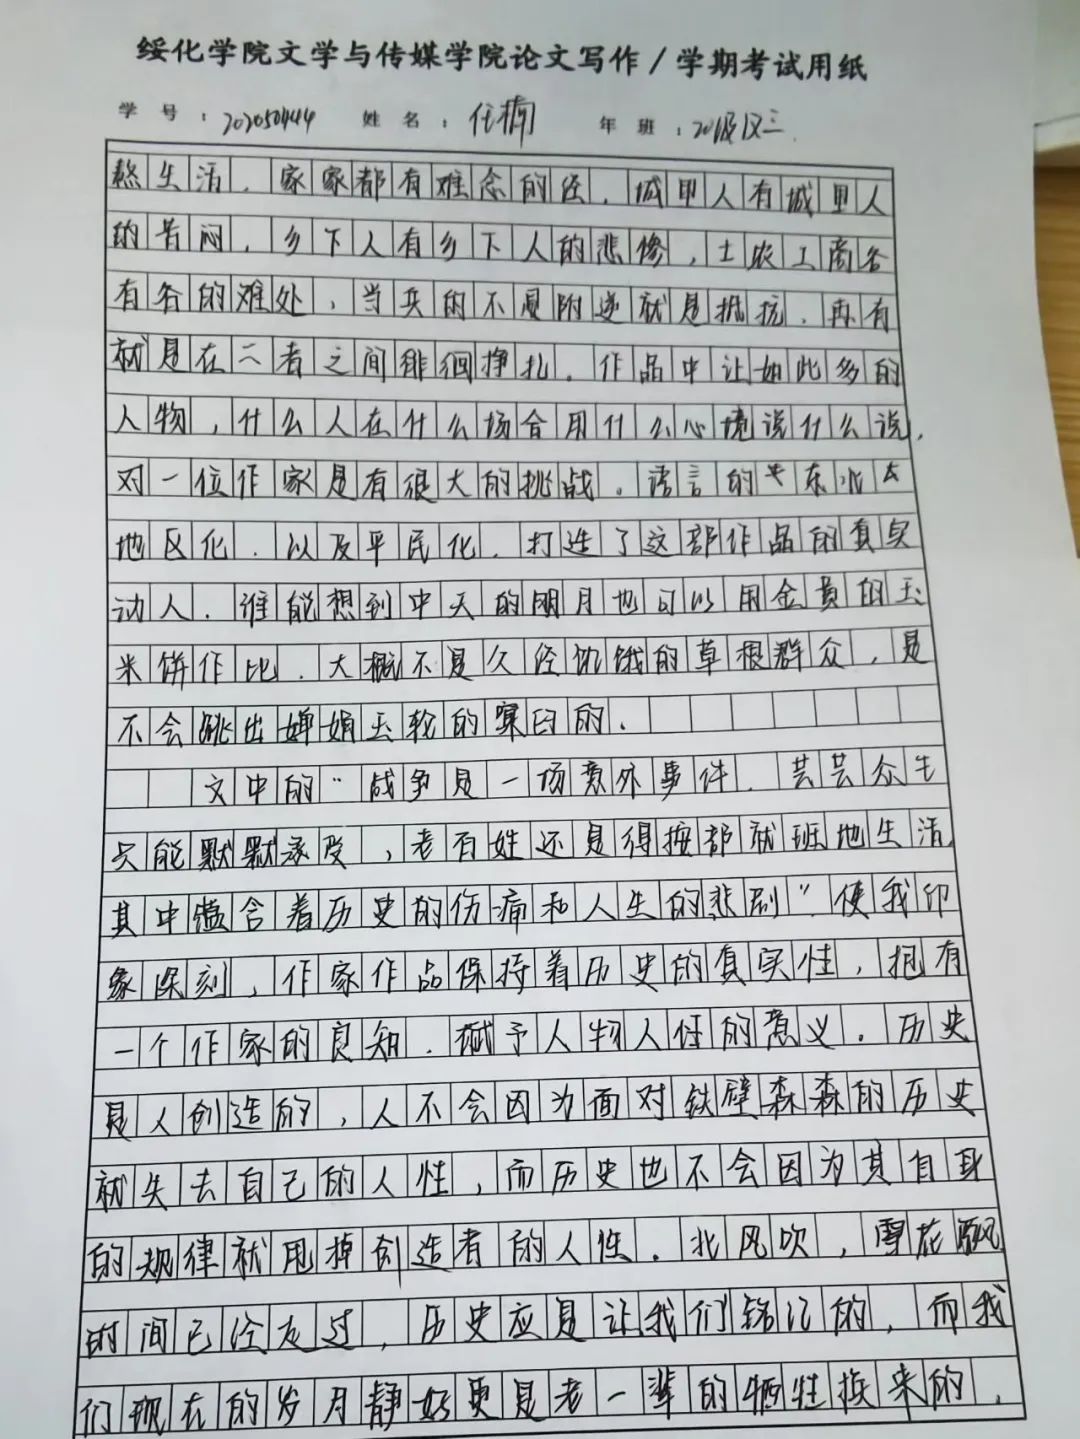 绥化学院文学与传媒学院论文写作/学期考试用纸
学号:202050444 姓名:任楠 年班:20级汉三.
熬生活.家家都有难念的经.城里人有城里人
的苦闷,乡下人有乡下人的悲惨,士农工商各
有各的难处,当兵的不是附逆就是抵抗.再有
就是在二者之间徘徊挣扎.作品中让如此多的
人物,什么人在什么场合用什么心境说什么说,
对一位作家是有很大的挑战。语言的
地区化.以及平民化.打造了这部作品的真实
动人.谁能想到中天的明月也可以用金黄的玉
米饼作比.大概不是久经饥饿的草根群众,是
不会跳出婵娟玉轮的窠臼的.
文中的“战争是一场意外事件.芸芸众生
只能默默承受,老百姓还是得按部就班地生活
其中蕴含着历史的伤痛和人生的悲剧”使我印
象深刻,作家作品保持着历史的真实性,抱有
一个作家的良知.赋予人物人性的意义。历史
是人创造的,人不会因为面对铁壁森森的历史
就失去自己的人性,而历史也不会因为其自身
的规律就甩掉创造者的人性.北风吹,雪花飘
时间已经走过,历史应是让我们铭记的,而我
们现在的岁月静好更是老一辈的牺牲换来的,